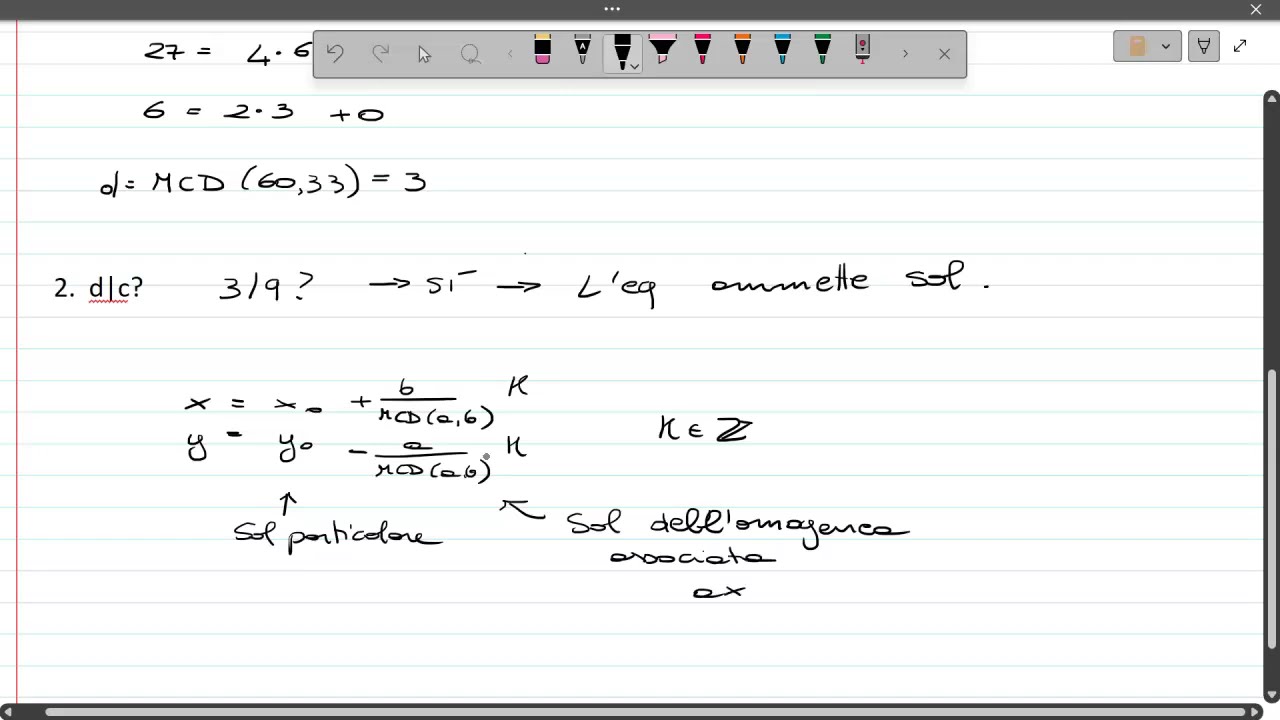 27 = 4·6
6 = 2·3 +0
d= MCD (60,33) = 3
2. d|c? 3/9? → SI → L'eq ammette sol.
x = x0 + b/MCD(a,b) K
y = y0 - a/MCD(a,b) K K ∈ ℤ
Sol particolare
Sol dell'omogenea
associata
ax